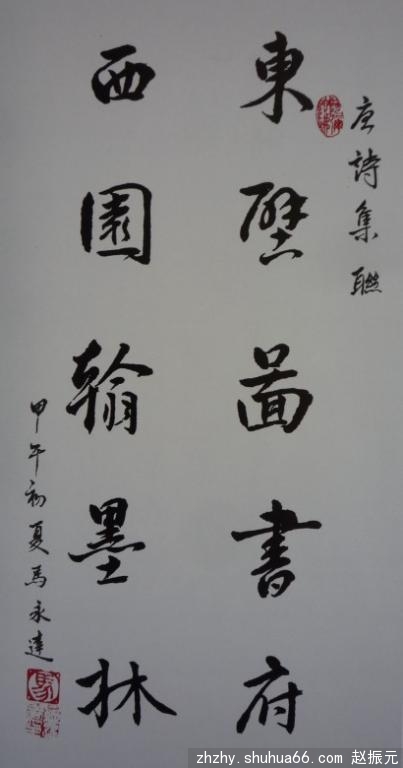 唐詩集聯
東壁啚書府
西園翰墨林
甲午初夏馬永達
zhzhy.shuhua66.com 赵振元